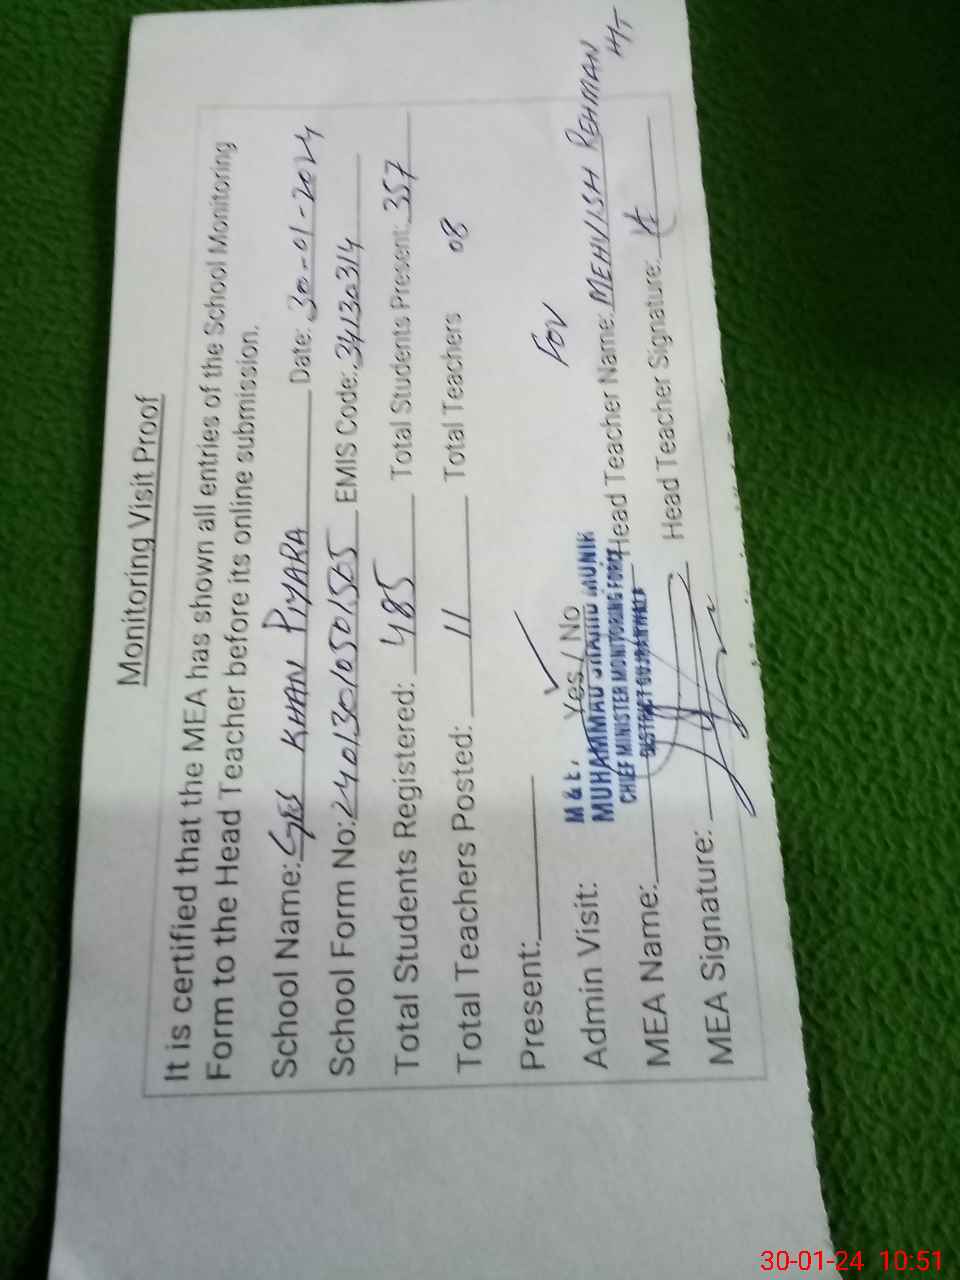 Monitoring Visit Proof
It is certified that the MEA has shown all entries of the School Monitoring
Form to the Head Teacher before its online submission.
School Name: GES KHAN PIYARA Date: 30-01-2024
School Form No: 24013010501505 EMIS Code: 34130314
Total Students Registered: 485 Total Students Present: 357
Total Teachers Posted: 11 Total Teachers 08
Present:
Admin Visit: Yes / No ✓ For
M & E.
MUHAMMAD MUNIR
CHIEF MINISTER MONITORING FORCE
DISTRICT GUJRANWALA
MEA Name: Head Teacher Name: MEHVISH REHMAN H/T
MEA Signature: Head Teacher Signature:
30-01-24 10:51